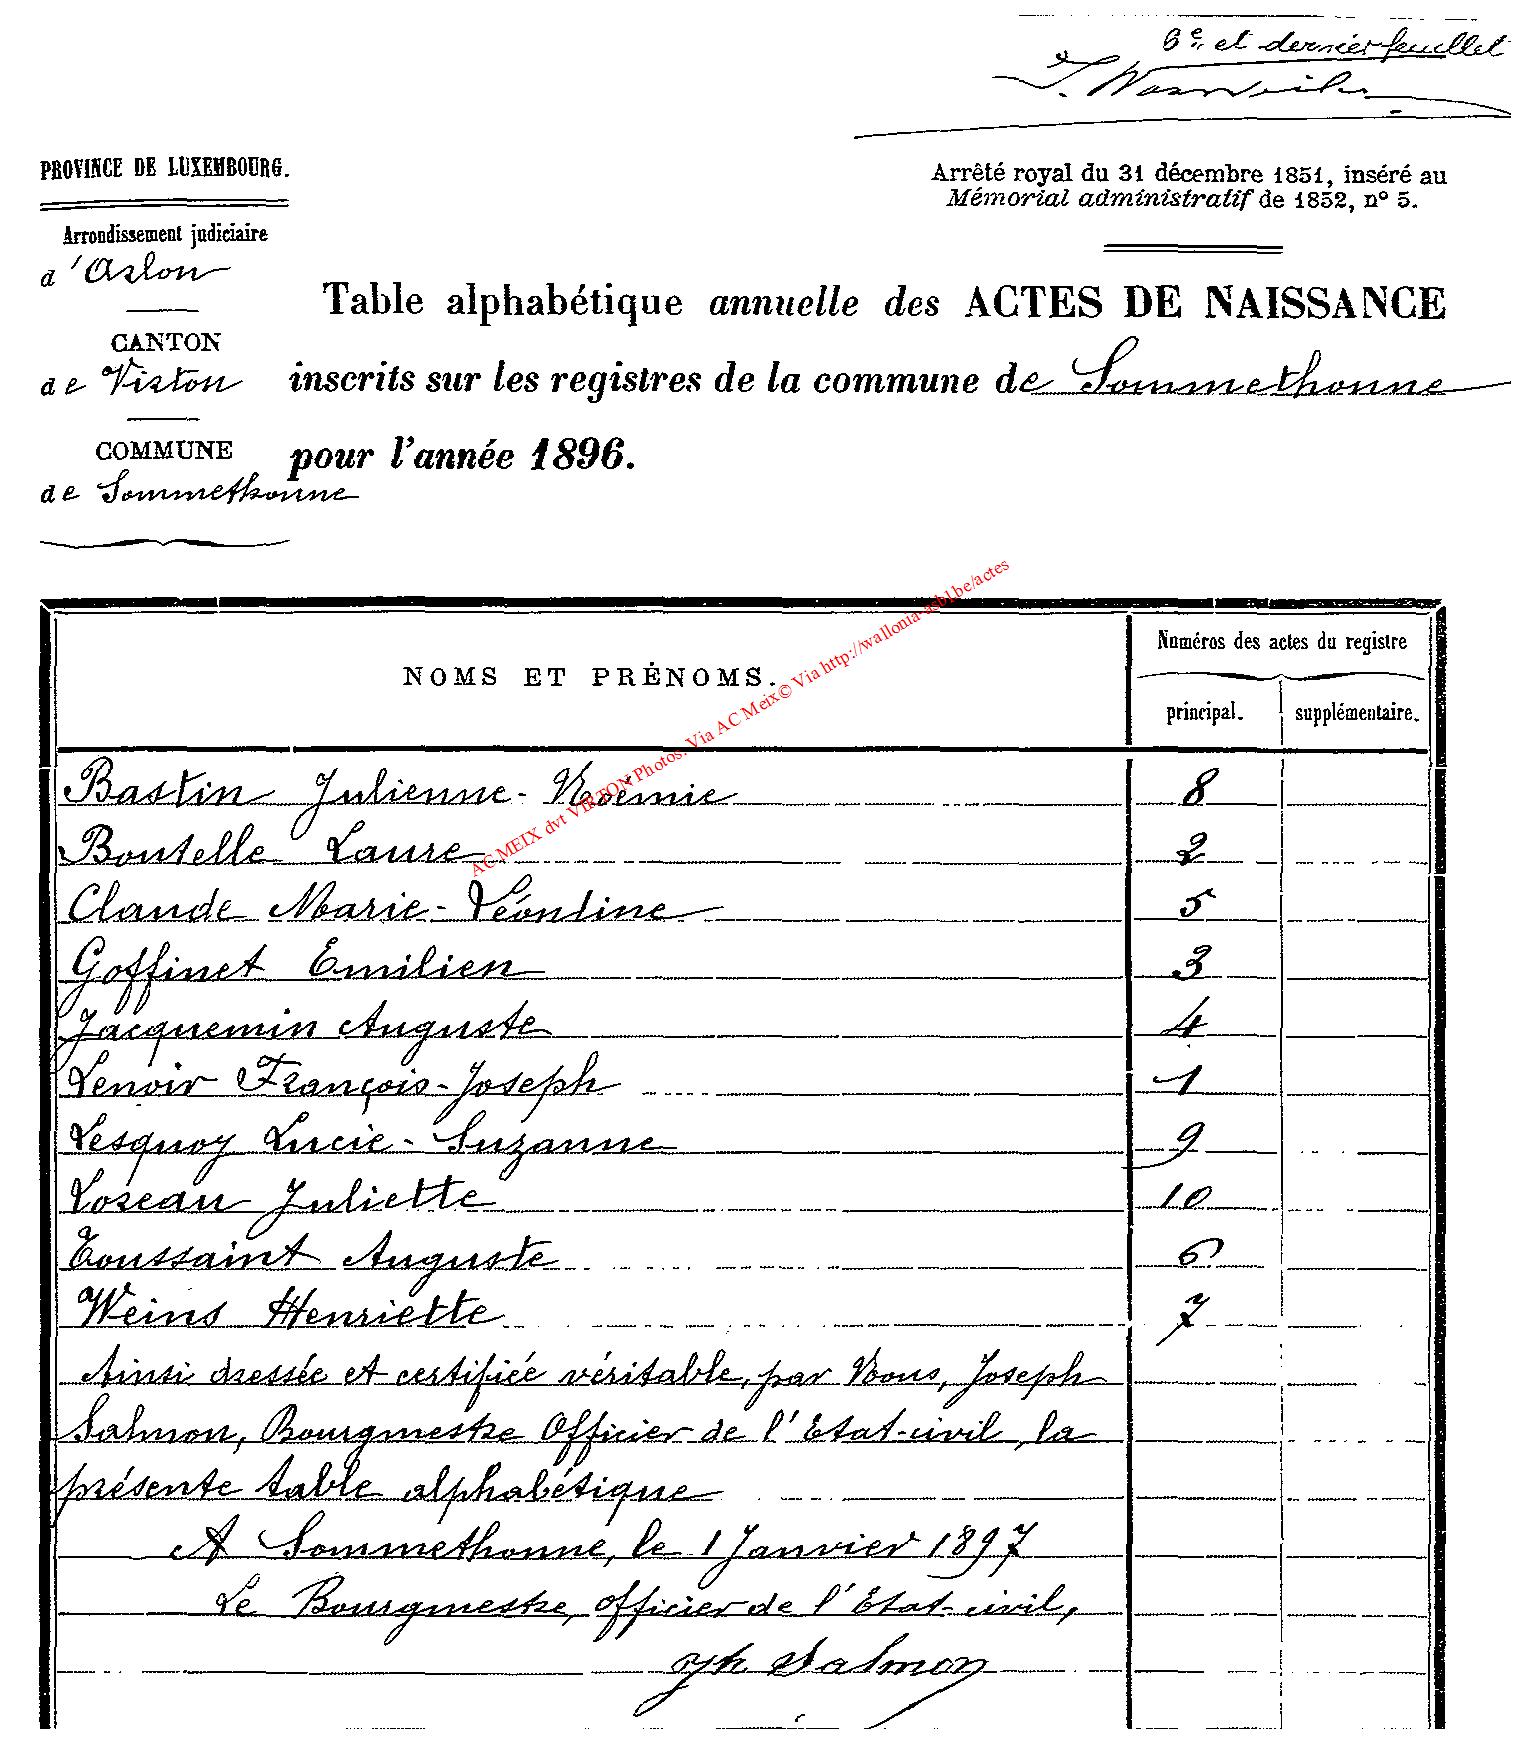 6e et dernier feuillet
PROVINCE DE LUXEMBOURG.
Arrêté royal du 31 décembre 1851, inséré au
Mémorial administratif de 1852, n° 5.
Arrondissement judiciaire
d'Arlon
CANTON
de Virton
COMMUNE
de Sommethonne
Table alphabétique annuelle des ACTES DE NAISSANCE
inscrits sur les registres de la commune de Sommethonne
pour l'année 1896.
AC MEIX dvt VIRTON Photos. Via AC Meix© Via http://wallonia-asbl.be/actes
NOMS ET PRÉNOMS.
Numéros des actes du registre
principal. supplémentaire.
Bastin Julienne-Noémie 8
Boutelle Laure 2
Claude Marie-Léontine 5
Goffinet Emilien 3
Jacquemin Auguste 4
Lenoir François-Joseph 1
Lesquoy Lucie-Suzanne 9
Loreau Juliette 10
Toussaint Auguste 6
Weins Henriette 7
Ainsi dressée et certifiée véritable, par Nous, Joseph
Salmon, Bourgmestre Officier de l'Etat-civil, la
présente table alphabétique
A Sommethonne, le 1 Janvier 1897
Le Bourgmestre, officier de l'Etat-civil,
Jh Salmon